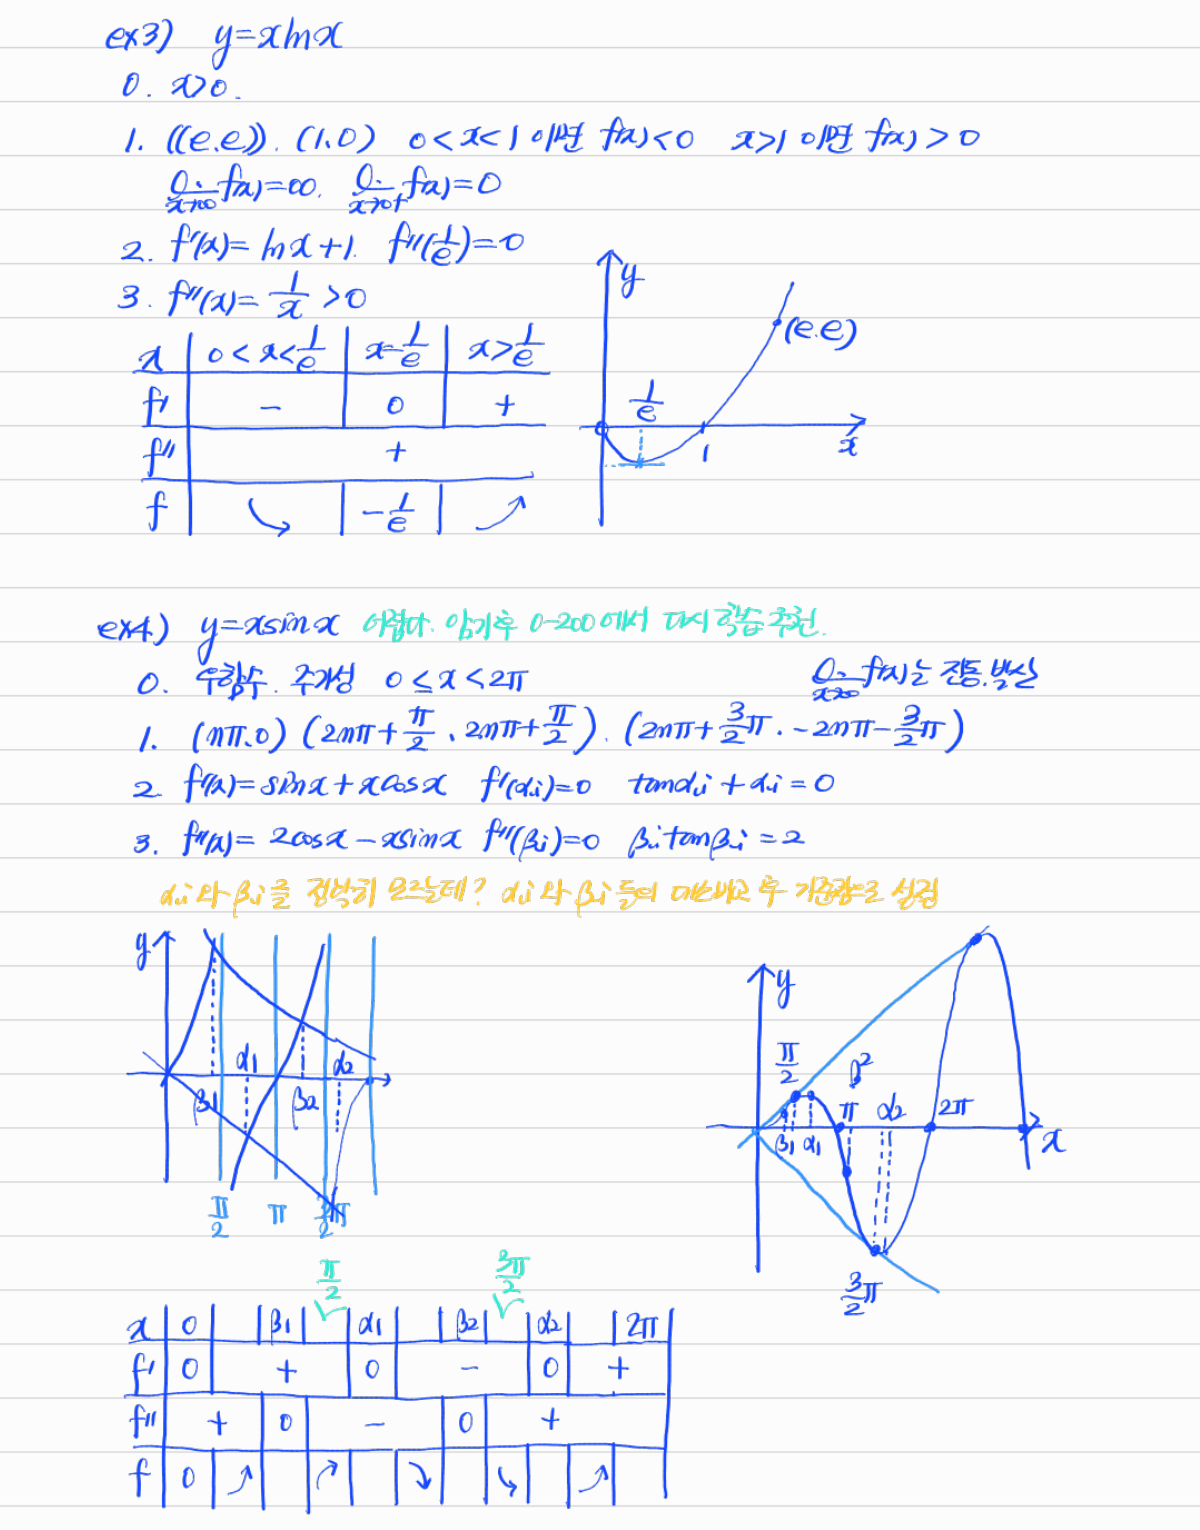 ex3) y=xlnx
0. x>0.
1. ((e.e)). (1.0) 0<x<1 이면 f(x)<0 x>1 이면 f(x)>0
lim x→∞ f(x)=∞. lim x→0+ f(x)=0
2. f'(x)=lnx+1. f''(1/e)=0
3. f''(x)=1/x >0
x | 0<x<1/e | x=1/e | x>1/e
f' | - | 0 | +
f'' | +
f | ↘ | -1/e | ↗
y
(e.e)
1/e
1
x
ex4) y=xsinx 어렵다. 암기후 0-200에서 다시 학습 추천.
0. 우함수. 주기성 0≤x<2π lim x→∞ f(x)는 진동.발산
1. (nπ.0) (2nπ+π/2, 2nπ+π/2). (2nπ+3/2π. -2nπ-3/2π)
2. f'(x)=sinx+xcosx f'(αi)=0 tanαi+αi=0
3. f''(x)=2cosx-xsinx f''(βi)=0 βitanβi=2
αi와 βi를 정확히 모르는데? αi와 βi들의 대소비교 후 기준값으로 설정
y
α1 α2
β1 β2
π/2 π 3/2π
y
π/2 β2
π α2 2π
β1 α1 x
3/2π
π/2 3π/2
x | 0 | β1 | α1 | β2 | α2 | 2π
f' | 0 | + | 0 | - | 0 | +
f'' | + | 0 | - | 0 | +
f | 0 | ↗ | ↗ | ↘ | ↘ | ↗